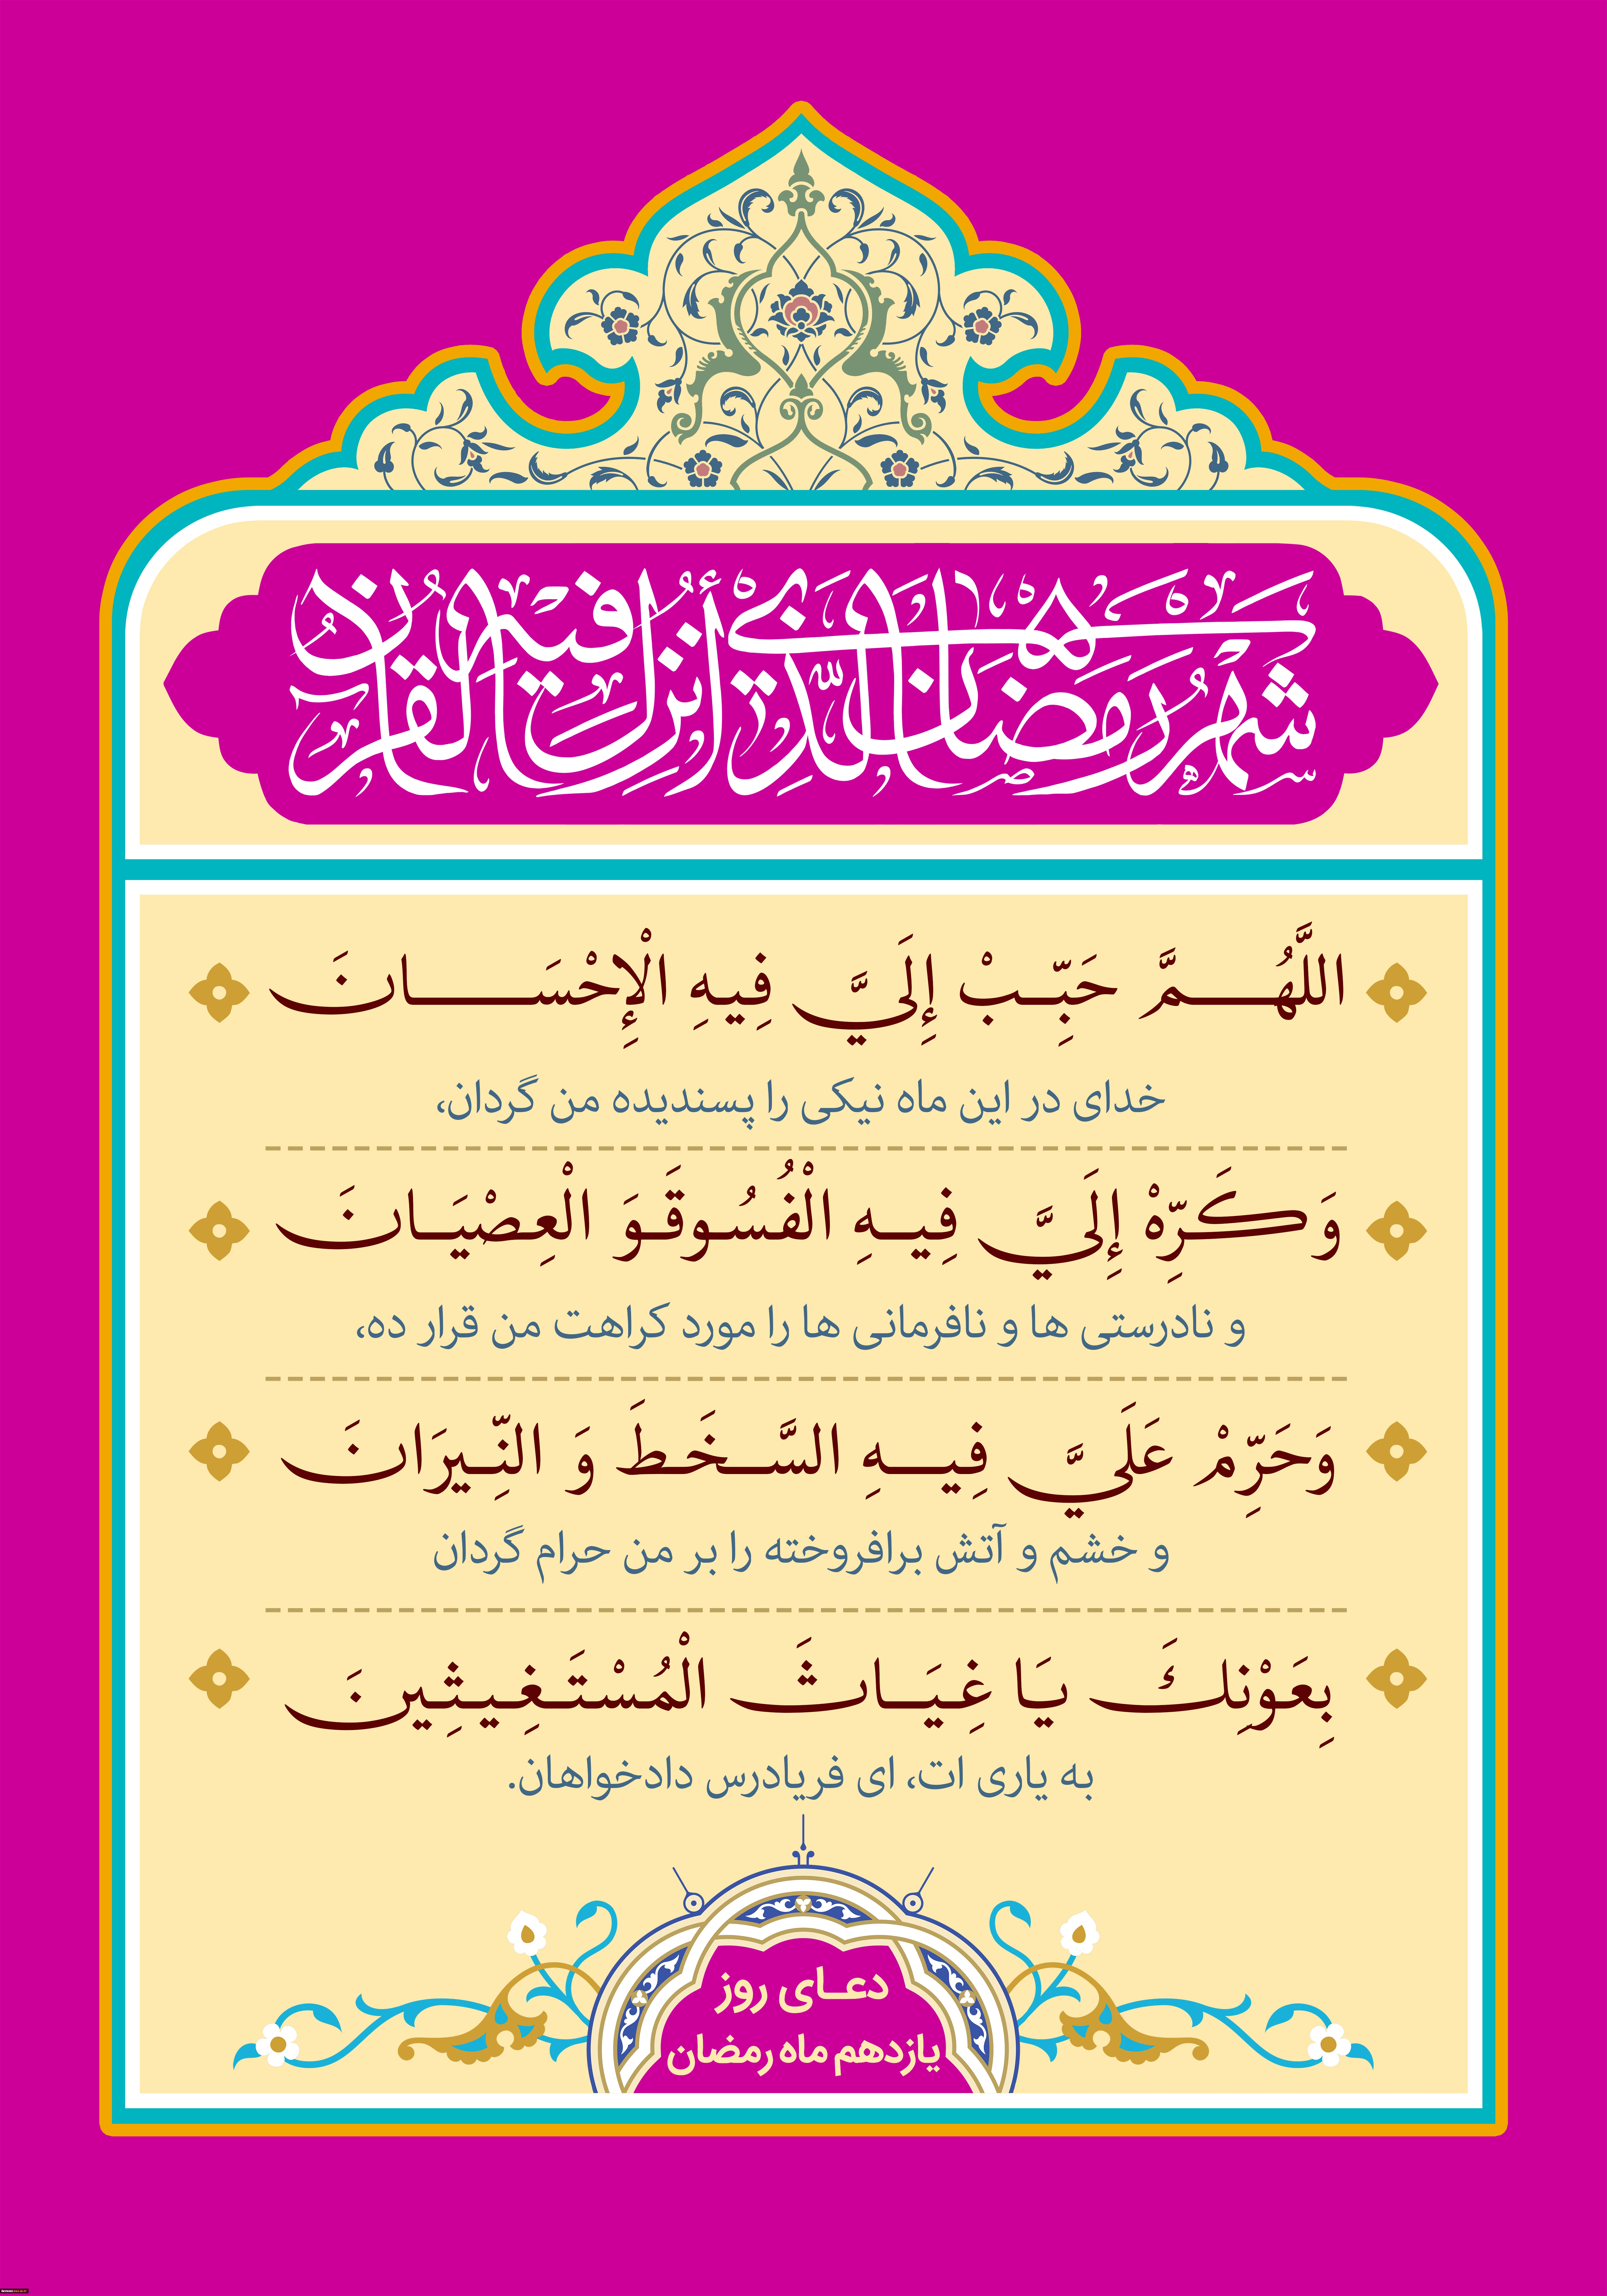 شهر رمضان الذي أنزل فيه القرآن
اللَّهُمَّ حَبِّبْ إِلَيَّ فِيهِ الْإِحْسَانَ
خدای در این ماه نیکی را پسندیده من گردان،
وَكَرِّهْ إِلَيَّ فِيهِ الْفُسُوقَوَ الْعِصْيَانَ
و نادرستی ها و نافرمانی ها را مورد کراهت من قرار ده،
وَحَرِّمْ عَلَيَّ فِيهِ السَّخَطَ وَ النِّيرَانَ
و خشم و آتش برافروخته را بر من حرام گردان
بِعَوْنِكَ يَا غِيَاثَ الْمُسْتَغِيثِينَ
به یاری ات، ای فریادرس دادخواهان.
دعای روز
یازدهم ماه رمضان